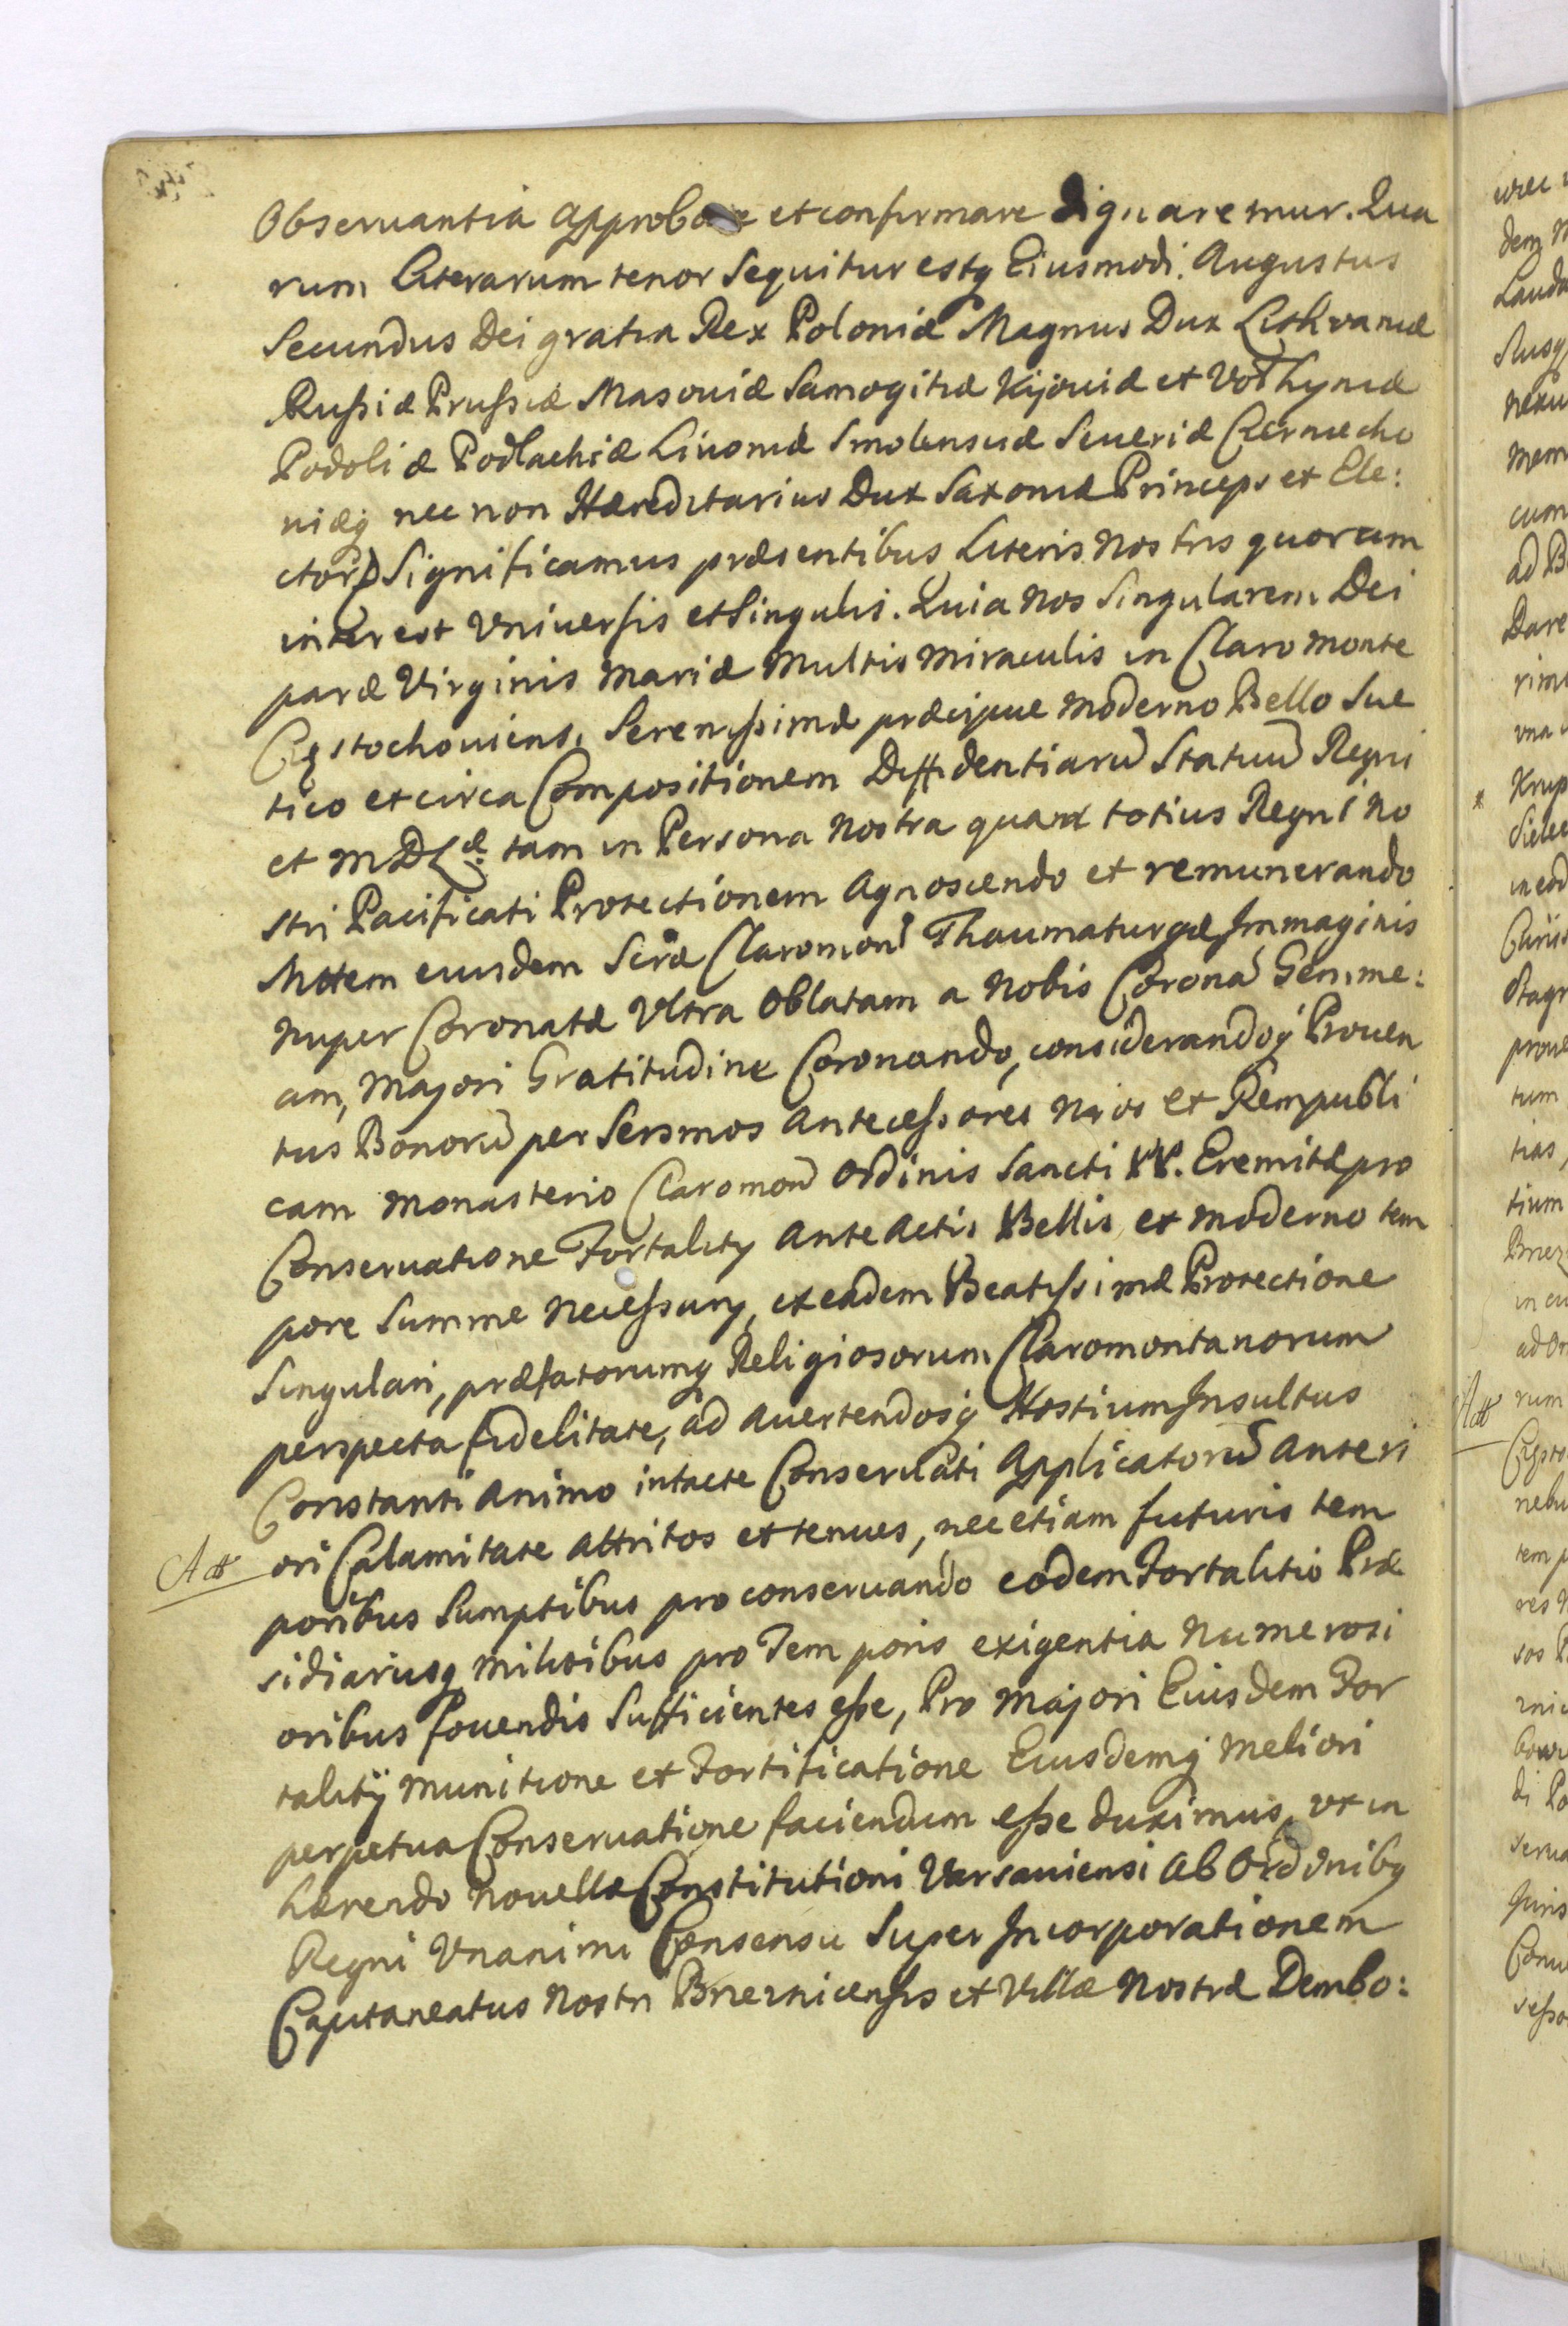 Observantia Approbare et confirmare dignaremur. Qua
rum Literarum tenor Sequitur estq Eiusmodi. Augustus
Secundus Dei gratia Rex Poloniæ Magnus Dux Lithvaniæ
Russiæ Prussiæ Masoviæ Samogitiæ Kijoviæ et Vołhyniæ
Podoliæ Podlachiæ Livoniæ Smolensciæ Severiæ Czerniecho
viæq nec non Hæreditarius Dux Saxoniæ Princeps et Ele:
ctor) Significamus præsentibus Literis Nostris quorum
interest Vniversis et Singulis. Quia Nos Singularem Dei
paræ Virginis Mariæ Multis Miraculis in Claro Monte
Częstochoviens. Serenissimæ præcipue Moderno Bello Sue
tico et circa Compositionem Diffidentiarũ Statuũ Regni
et MDLæ. tam in Persona Nostra quam totius Regni No
stri Pacificati Protectionem Agnoscendo et remunerando
Mttem eiusdem Scræ Claromont Thaumaturgæ Immaginis
Nuper Coronatæ Vltra Oblatam a Nobis Coronã Gemme:
am, Majori Gratitudine Coronando, considerandoq Proven
tus Bonorũ per Sersmos Antecessores Nros et Rempubli
cam Monasterio Claromonŧ Ordinis Sancti PP. Eremitæ pro
Conservatione Fortality Ante Actis Bellis, et moderno tem
pore Summe Necessary, ex eadem Beatissimæ Protectione
Singulari, præfatorumq Religiosorum Claromontanorum
perspecta fidelitate, ad Avertendosq Hostium Insultus
Constanti Animo intacte Conservati Applicatorũ Anteri
ori Calamitate Attritos et tenues, nec etiam futuris tem
poribus Sumptibus pro conservando eodem Fortalitio Præ
sidiariusq militibus pro Temporis exigentia Numerosi
oribus fovendis Sufficientes esse, Pro Majori Eiusdem For
talitÿ Munitione et Fortificatione Eiusdemq Meliori
perpetua Conservatione faciendum esse duximus, vt in
hærendo Novellæ Constitutioni Varsaviensi Ab Ordiniby
Regni Vnanimi Consensu Super Incorporationem
Capitaneatus Nostri Brzeznicensis et Villæ Nostræ Dembo: